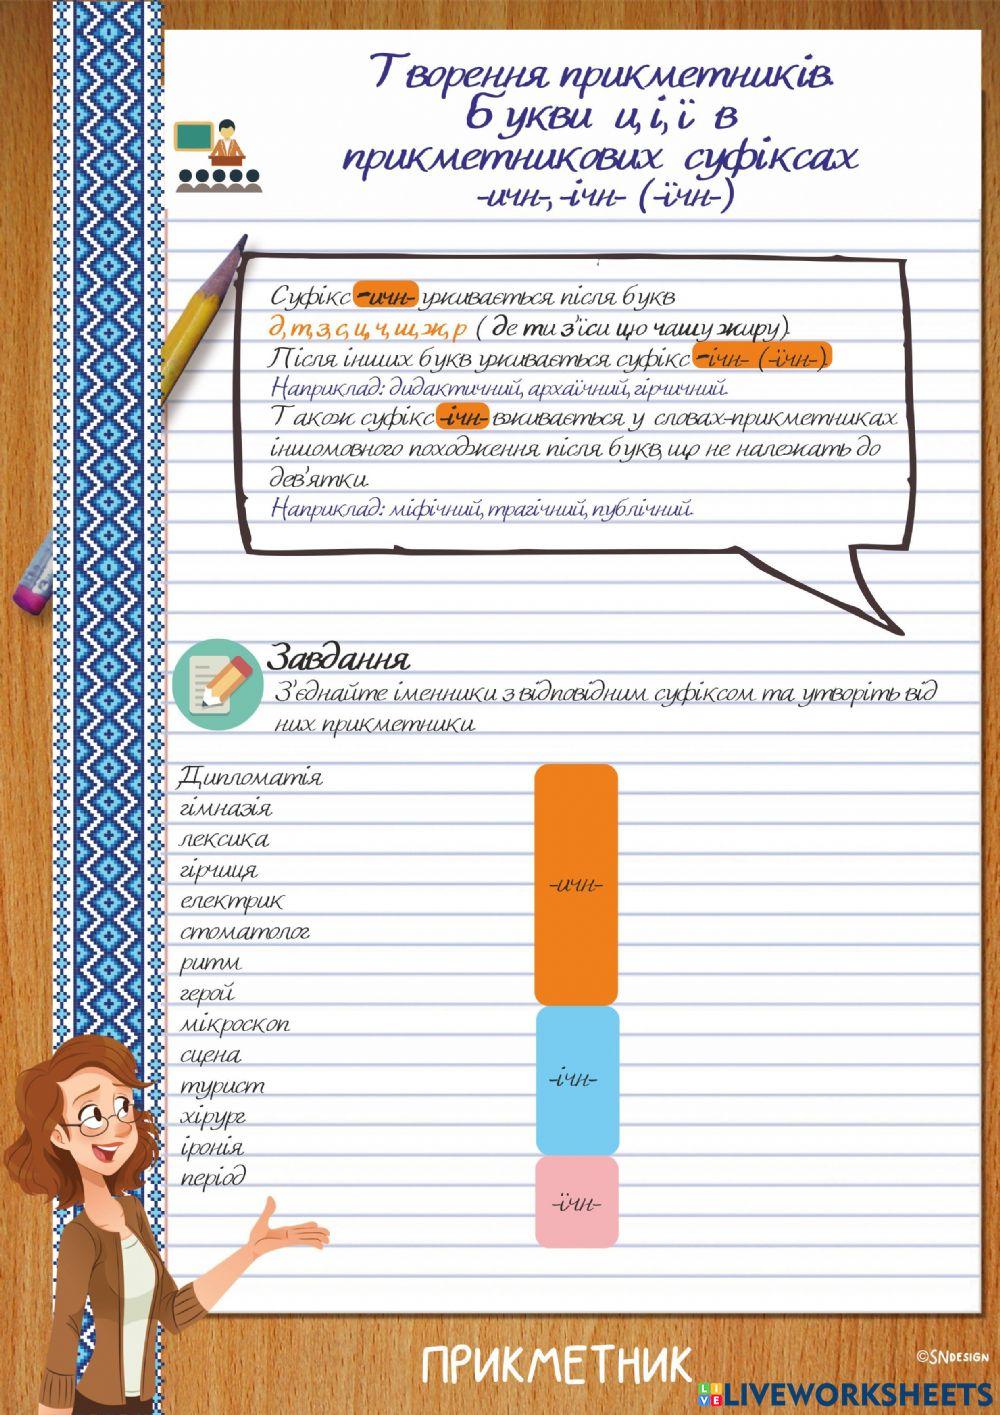 Творення прикметників.
Букви и, і, ї в
прикметникових суфіксах
-ичн-, -ічн- (-їчн-)
Суфікс -ичн- уживається після букв
д, т, з, с, ц, ч, ш, ж, р ( де ти з'їси цю чашу жиру).
Після інших букв уживається суфікс -ічн- (-їчн-).
Наприклад: дидактичний, архаїчний, гірчичний.
Також суфікс -ічн- вживається у словах-прикметниках
іншомовного походження після букв, що не належать до
дев'ятки.
Наприклад: міфічний, трагічний, публічний.
Завдання
З'єднайте іменники з відповідним суфіксом та утворіть від
них прикметники.
Дипломатія
гімназія
лексика
гірчиця
електрик
стоматолог
ритм
герой
мікроскоп
сцена
турист
хірург
іронія
період
-ичн-
-ічн-
-їчн-
ПРИКМЕТНИК
©SNDESIGN
LIVE LIVEWORKSHEETS